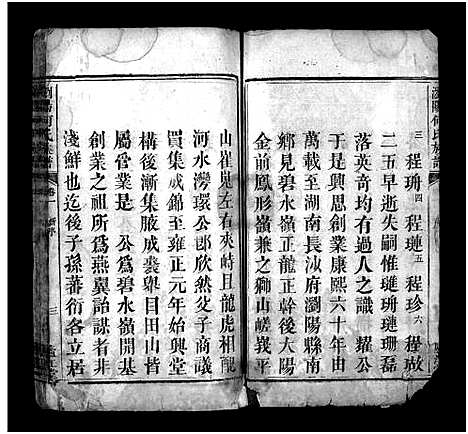 瀏陽何氏族譜
三 程珊 四 程璉 五 程珍 六 程
二五早逝失嗣惟璡珊璉珊磊
落英奇均有過人之識 耀公
于是興思創業康熙六十年由
粵遊至湖南長沙府瀏陽縣南
鄉見碧水嶺正龍正幹後大陽
金前鳳形嶺兼之獅山嵯峩平
山崔晃左右夾峙且龍虎相
河水灣環公郎欣然父子商議
買集成錦至雍正元年始興堂
構後漸集腋成裘舉目田山皆
屬舊業是 公爲碧水嶺開基
創業之祖所爲燕翼詒謀者非
淺鮮也迄後子孫蕃衍各立居
瀏陽何氏族譜
卷一
三